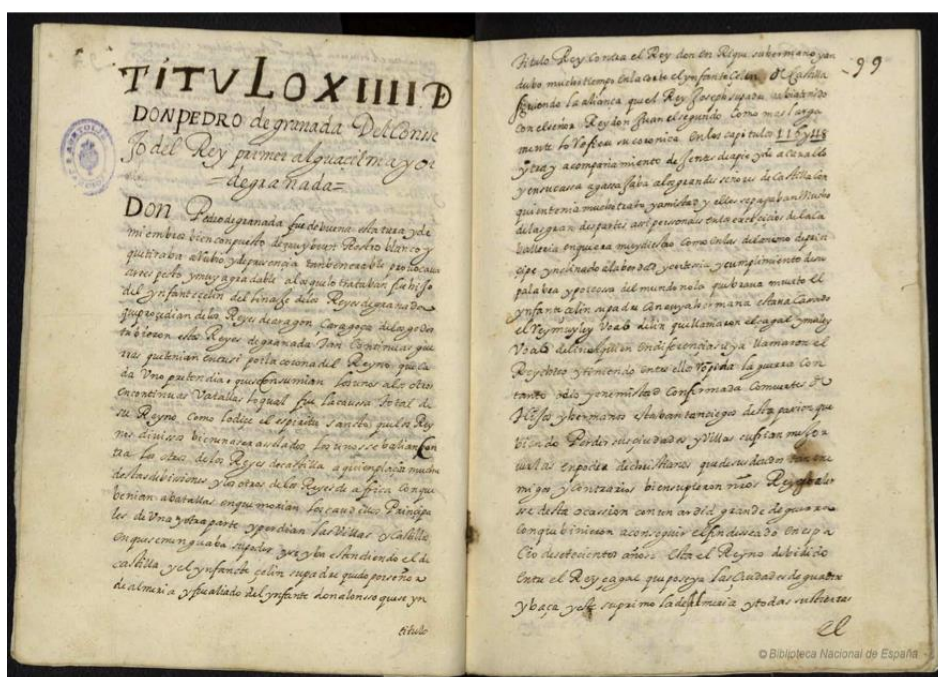 TITVLO XIIII D
DON PEDRO de granada Del Conse
Jo del Rey primer alguacil mayor
=de granada=
DON Pedro de granada fue de buena estatura y de
miembros bien conpuesto de muy buen Rostro blanco y
que tiraba a Rubio y de presencia tan benerable
y muy agradable a los que lo trataban fue hijo
del ynfante celin del linaxe de los Reyes de granada
que procedian de los Reyes de aragon Caragoça de los godos
tubieron estos Reyes de granada tan Continuas gue
rras que tenian entre si por la corona del Reyno que ca
da Uno pretendia que se consumian los unos a los otros
en continuas Vatallas lo qual fue la caussa total de
su Reyno como lo dice el espiritu sancto que los Rey
nos divissos bienen a ser asolados los unos se balian con
tra los otros de los Reyes de castilla a quien placia mucho
destas debissiones y los otros de los Reyes de affrica con que
benian a batallas en que morian los caudillos Principa
les de Una y otra parte y perdian las Villas y Castillos
en que menguaba su poder y se yba estendiendo el de
castilla y el ynfante celin su padre quedo por señor
de almeria y fue aliado del ynfante don alonso que se yn
titulo
99
titulo Rey Contra el Rey don en Rique su hermano y an
dubo mucho tiempo en la Corte el ynfante Celin de Castilla
siguiendo la aliança que el Rey Joseph su padre
Con el señor Rey don Juan el segundo Como mas larga
mente lo en su coronica en los capitulos 116 y 118
y trayo acompañamiento de Jente de a pie y de a cavallo
y en su cassa agassajaba a los grandes señores de castilla con
quien tenia mucho trato y amistad y ellos se pagaban Mucho
de las grandes partes assi personales
balleria en que era muy diestro Como en las del animo de prin
cipe ynclinado a la berdad y entereza y cumplimiento de su
palabra y por cossa del mundo no la quebrava murio el
ynfante celin su padre Con cuya hermana estava Cassado
el Rey muley
llamaron el
Rey chico y teniendo entre ellos la guerra con
tanto odio y enemistad Confirmada Con muertes de
Hijos y hermanos estaban tan ciegos desta passion que
biendo Perder sus ciudades y Villas
en poder de christianos
migos y contrarios bien supieron nros Reyes
se desta ocassion con un ardid grande de guerra
con que binieron a conseguir el fin desseado en espa
cio de setecientos años Esta el Reyno debidido
entre el Rey çagal que posseya las Ciudades de guadix
y baça y este suprimo la de almeria y todas sus tierras
el
© Biblioteca Nacional de España